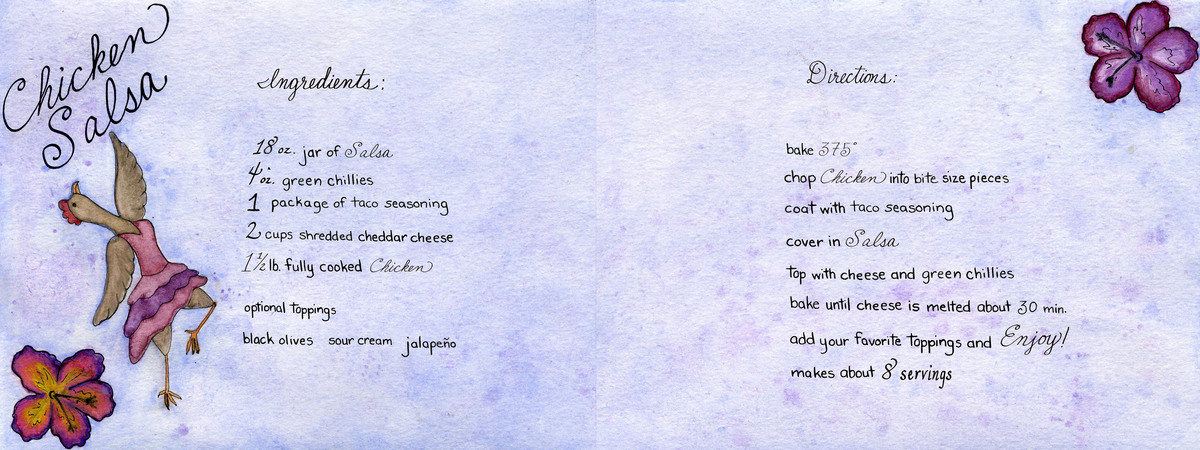 Chicken
Salsa
Ingredients:
18 oz. jar of Salsa
4 oz. green chillies
1 package of taco seasoning
2 cups shredded cheddar cheese
1 1/2 lb. fully cooked Chicken
optional toppings
black olives sour cream jalapeño
Directions:
bake 375°
chop Chicken into bite size pieces
coat with taco seasoning
cover in Salsa
top with cheese and green chillies
bake until cheese is melted about 30 min.
add your favorite toppings and Enjoy!
makes about 8 servings